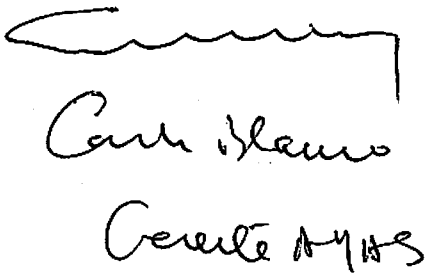 Carlos Blanco
Gerente AYAS